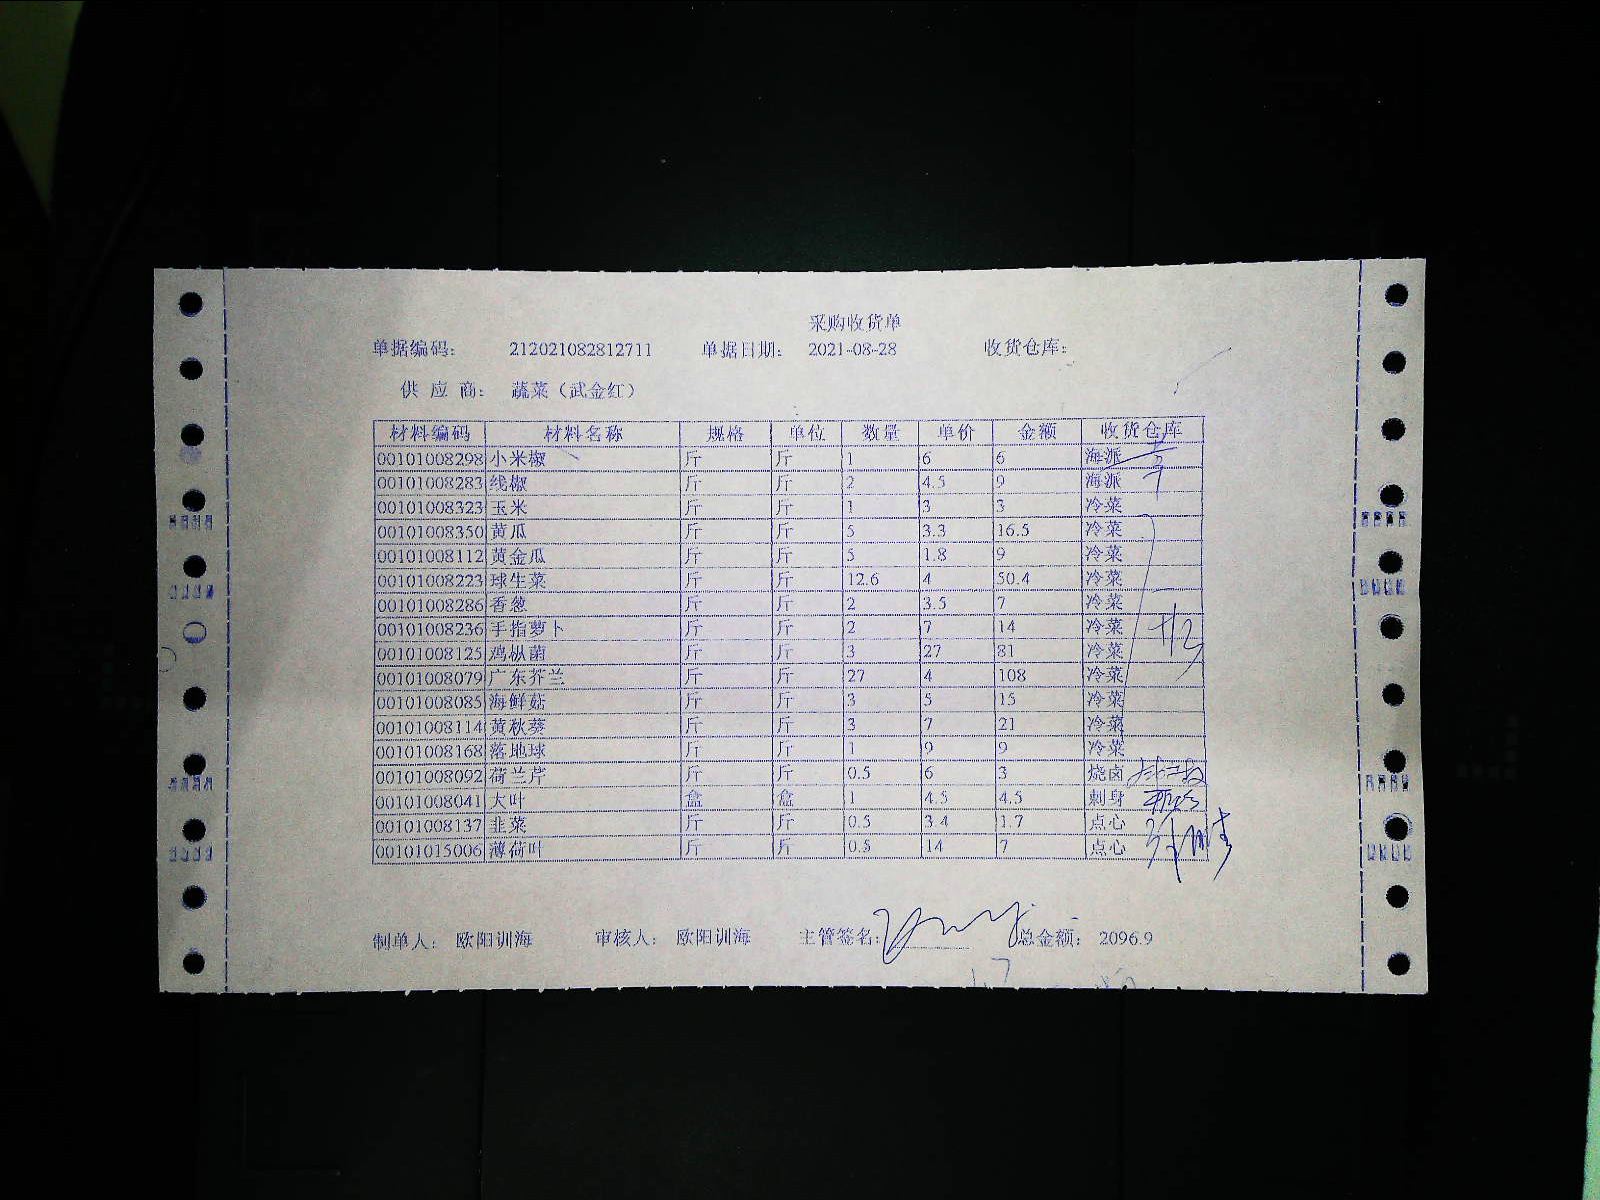 采购收货单
单据编码： 212021082812711 单据日期： 2021-08-28 收货仓库：
供 应 商： 蔬菜（武金红）
材料编码 材料名称 规格 单位 数量 单价 金额 收货仓库
00101008298 小米椒 斤 斤 1 6 6 海派
00101008283 线椒 斤 斤 2 4.5 9 海派
00101008323 玉米 斤 斤 1 3 3 冷菜
00101008350 黄瓜 斤 斤 5 3.3 16.5 冷菜
00101008112 黄金瓜 斤 斤 5 1.8 9 冷菜
00101008223 球生菜 斤 斤 12.6 4 50.4 冷菜
00101008286 香葱 斤 斤 2 3.5 7 冷菜
00101008236 手指萝卜 斤 斤 2 7 14 冷菜
00101008125 鸡枞菌 斤 斤 3 27 81 冷菜
00101008079 广东芥兰 斤 斤 27 4 108 冷菜
00101008085 海鲜菇 斤 斤 3 5 15 冷菜
00101008114 黄秋葵 斤 斤 3 7 21 冷菜
00101008168 落地球 斤 斤 1 9 9 冷菜
00101008092 荷兰芹 斤 斤 0.5 6 3 烧卤
00101008041 大叶 盒 盒 1 4.5 4.5 刺身
00101008137 韭菜 斤 斤 0.5 3.4 1.7 点心
00101015006 薄荷叶 斤 斤 0.5 14 7 点心
制单人： 欧阳训海 审核人： 欧阳训海 主管签名： 总金额： 2096.9